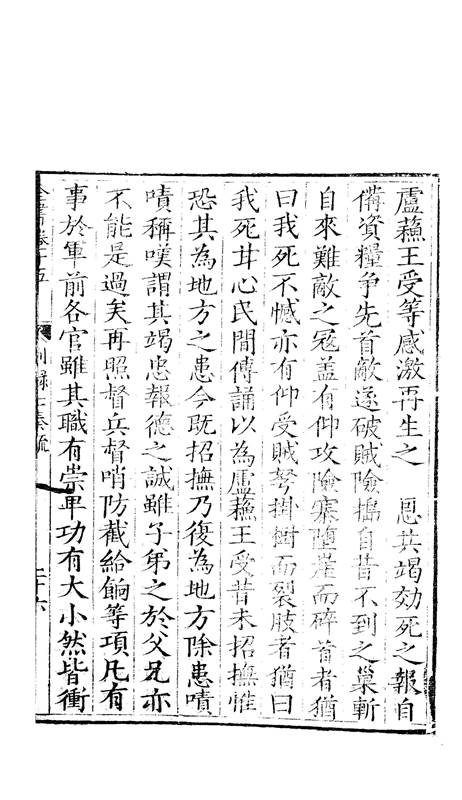 盧蘓王受等感激再生之　恩共竭効死之報自
備資糧争先首敵遂破賊險搗自昔不到之巢斬
自來難敵之冦盖有仰攻險寨墮崖而碎首者猶
曰我死不憾亦有仰受賊弩掛樹而裂肢者猶曰
我死甘心民間傳誦以為盧蘓王受昔未招撫惟
恐其為地方之患今既招撫乃復為地方除患嘖
嘖稱嘆謂其竭忠報德之誠雖子弟之於父兄亦
不能是過矣再照督兵督哨防截給餉等項凡有
事於軍前各官雖其職有崇卑功有大小然皆衝
全書卷十五　别録七奏疏　二十六